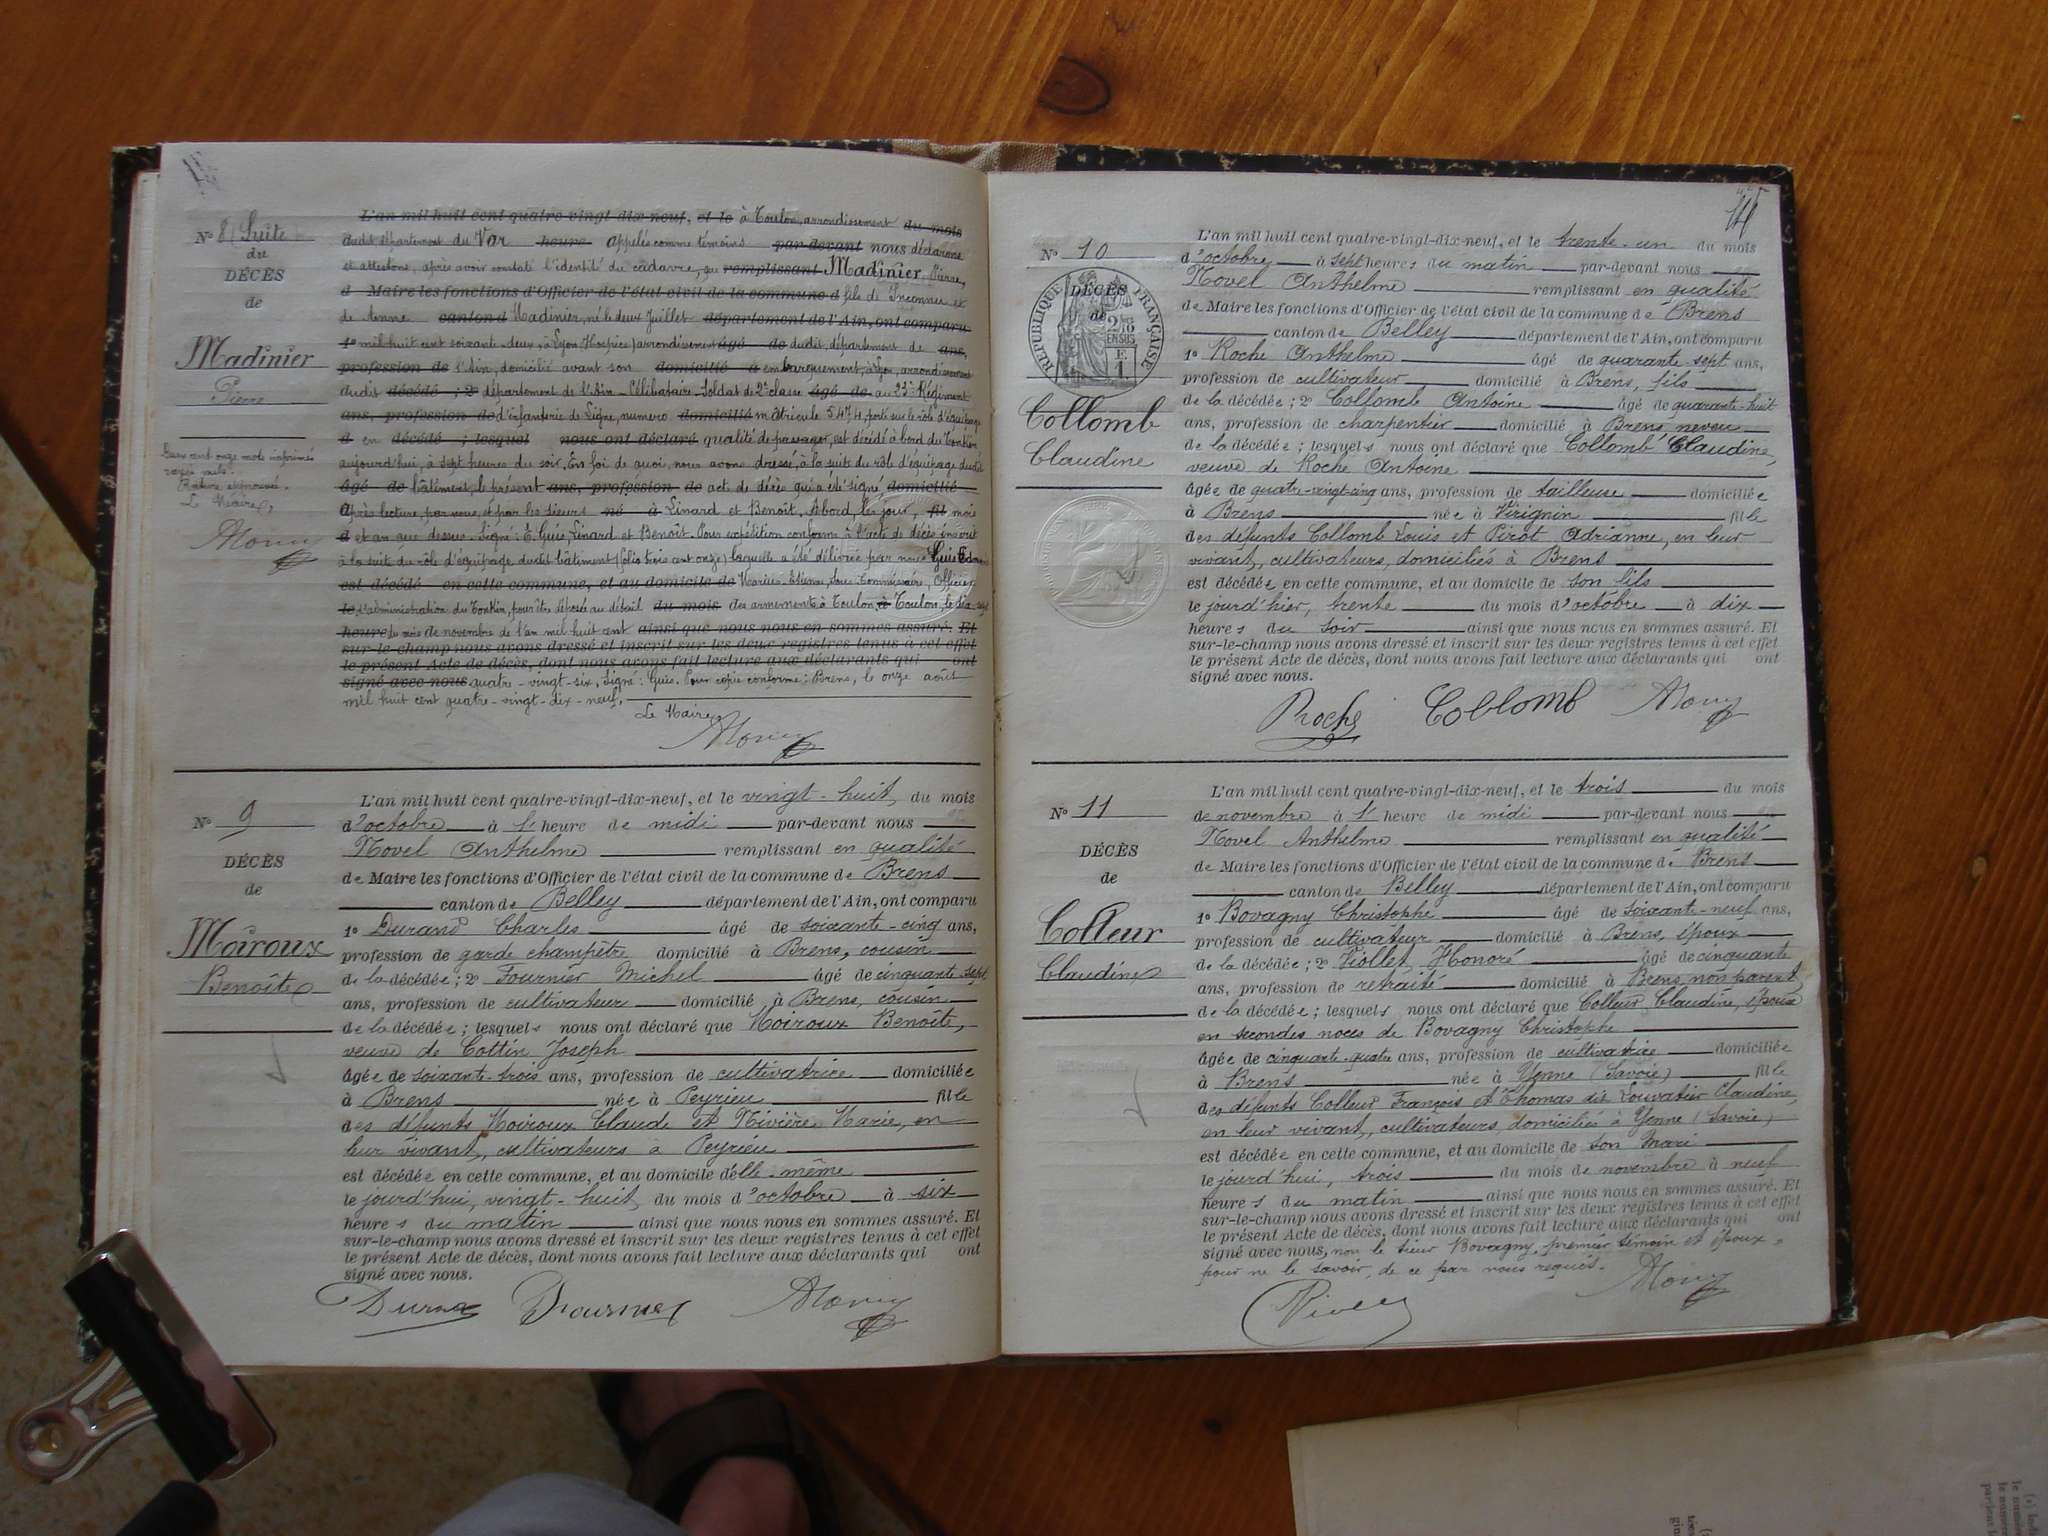 Nº 8 (Suite
du
DÉCÈS
de
Madinier
Pierre
L'an mil huit cent quatre-vingt-dix-neuf, et le à Toulon, arrondissement du mois
dudit département du Var heure appelés comme témoins par-devant nous déclarons
et attestons, après avoir constaté l'identité du cadavre, que remplissant Madinier Pierre,
d Maire les fonctions d'Officier de l'état civil de la commune d fils de Inconnu et
de Anne canton d Madinier, né le deux Juillet département de l'Ain, ont comparu
1º mil huit cent soixante-deux, à Lyon (Hospice) arrondissement âgé de dudit département de ans,
profession de l'Ain, domicilié avant son domicilié à embarquement, à Lyon, arrondissement
dudit décédé ; 2º département de l'Ain - Célibataire - Soldat de 2e classe âgé de au 23e Régiment
ans, profession de d'infanterie de Ligne, numéro domicilié matricule 5474, porté sur le rôle d'équipage
d en décédé ; lesquel nous ont déclaré qualité de passager, est décédé à bord du Tonkin
aujourd'hui, à sept heures du soir. En foi de quoi, nous avons dressé, à la suite du rôle d'équipage dudit
âgé de bâtiment, le présent ans, profession de acte de décès qui a été signé domicilié
après lecture, par nous, et par les sieurs né à Linard et Benoit. A bord, les jour, fil mois
d et an que dessus. Signé : E. Guis, Linard et Benoît. Pour expédition conforme à l'acte de décès inscrit
à la suite du rôle d'équipage dudit bâtiment (folio trois cent onze) laquelle a été délivrée par nous Guis
est décédé en cette commune, et au domicile de Marius Etienne, Sous-Commissaire, Officier
le d'administration du Tonkin, pour être déposée au détail du mois des armements à Toulon, à Toulon, le
heure du mois de novembre de l'an mil huit cent ainsi que nous nous en sommes assuré. Et
sur-le-champ nous avons dressé et inscrit sur les deux registres tenus à cet effet
le présent Acte de décès, dont nous avons fait lecture aux déclarants qui ont
signé avec nous quatre-vingt-six. Signé : Guis. Pour copie conforme : Brens, le onze août
mil huit cent quatre-vingt-dix-neuf.
Le Maire,
cent onze mots imprimés
rayés nuls.
Rature approuvée.
Le Maire,
Nº 9
DÉCÈS
de
Moiroux
Benoîte
L'an mil huit cent quatre-vingt-dix-neuf, et le vingt-huit du mois
d'octobre à 1 heure de midi par-devant nous
Novel Anthelme remplissant en qualité
de Maire les fonctions d'Officier de l'état civil de la commune de Brens
canton de Belley département de l'Ain, ont comparu
1º Durand Charles âgé de soixante-cinq ans,
profession de garde champêtre domicilié à Brens, cousin
de la décédée ; 2º Fournier Michel âgé de cinquante-sept
ans, profession de cultivateur domicilié à Brens, cousin
de la décédée ; lesquels nous ont déclaré que Moiroux Benoîte,
veuve de Cottin Joseph
âgée de soixante-trois ans, profession de cultivatrice domiciliée
à Brens née à Peyrieu fille
des défunts Moiroux Claude et Nivière Marie, en
leur vivant, cultivateurs à Peyrieu
est décédée en cette commune, et au domicile d'elle-même
le jourd'hui, vingt-huit, du mois d'octobre à six
heures du matin ainsi que nous nous en sommes assuré. Et
sur-le-champ nous avons dressé et inscrit sur les deux registres tenus à cet effet
le présent Acte de décès, dont nous avons fait lecture aux déclarants qui ont
signé avec nous.
Nº 10
RÉPUBLIQUE FRANÇAISE
DÉCÈS
de
Collomb
Claudine
L'an mil huit cent quatre-vingt-dix-neuf, et le trente-un du mois
d'octobre à sept heures du matin par-devant nous
Novel Anthelme remplissant en qualité
de Maire les fonctions d'Officier de l'état civil de la commune de Brens
canton de Belley département de l'Ain, ont comparu
1º Roche Anthelme âgé de quarante-sept ans,
profession de cultivateur domicilié à Brens, fils
de la décédée ; 2º Collomb Antoine âgé de quarante-huit
ans, profession de charpentier domicilié à Brens neveu
de la décédée ; lesquels nous ont déclaré que Collomb Claudine,
veuve de Roche Antoine
âgée de quatre-vingt-cinq ans, profession de tailleuse domiciliée
à Brens née à Virignin fille
des défunts Collomb Louis et Pirot Adrianne, en leur
vivant, cultivateurs, domiciliés à Brens
est décédée en cette commune, et au domicile de son fils
le jourd'hier, trente du mois d'octobre à dix
heures du soir ainsi que nous nous en sommes assuré. Et
sur-le-champ nous avons dressé et inscrit sur les deux registres tenus à cet effet
le présent Acte de décès, dont nous avons fait lecture aux déclarants qui ont
signé avec nous.
Roche Collomb
Nº 11
DÉCÈS
de
Colleur
Claudine
L'an mil huit cent quatre-vingt-dix-neuf, et le trois du mois
de novembre à 1 heure de midi par-devant nous
Novel Anthelme remplissant en qualité
de Maire les fonctions d'Officier de l'état civil de la commune de Brens
canton de Belley département de l'Ain, ont comparu
1º Bovagny Christophe âgé de soixante-neuf ans,
profession de cultivateur domicilié à Brens, époux
de la décédée ; 2º Viollet Honoré âgé de cinquante
ans, profession de retraité domicilié à Brens, non parent
de la décédée ; lesquels nous ont déclaré que Colleur Claudine, épouse
en secondes noces de Bovagny Christophe
âgée de cinquante-quatre ans, profession de cultivatrice domiciliée
à Brens née à Yenne (Savoie) fille
des défunts Colleur François et Thomas dit Louvatier Claudine,
en leur vivant, cultivateurs, domiciliés à Yenne (Savoie)
est décédée en cette commune, et au domicile de son mari
le jourd'hui, trois du mois de novembre à neuf
heures du matin ainsi que nous nous en sommes assuré. Et
sur-le-champ nous avons dressé et inscrit sur les deux registres tenus à cet effet
le présent Acte de décès, dont nous avons fait lecture aux déclarants qui ont
signé avec nous, non le sieur Bovagny, premier témoin et époux,
pour ne le savoir, de ce par nous requis.